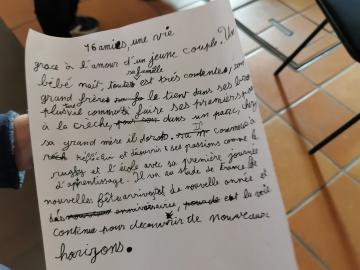 16 amies, une vie
grace à l'amour d'un jeune couple. Un
sa famille
bébé nait, toutes est très contentes, son
grand frère le tient dans ses bras
plus vie commence faire ses premiers pas
à la crèche, dans un parc, chez
sa grand mère il dort. commence à
réfléchir et découvrir ses passions comme le
rugby et l'école avec sa première journée
d'apprentissage. Il va au stade de France
nouvelles fêtes arrivent de nouvelle année et
anniversaires, la vie
continue pour découvrir de nouveaux
horizons.